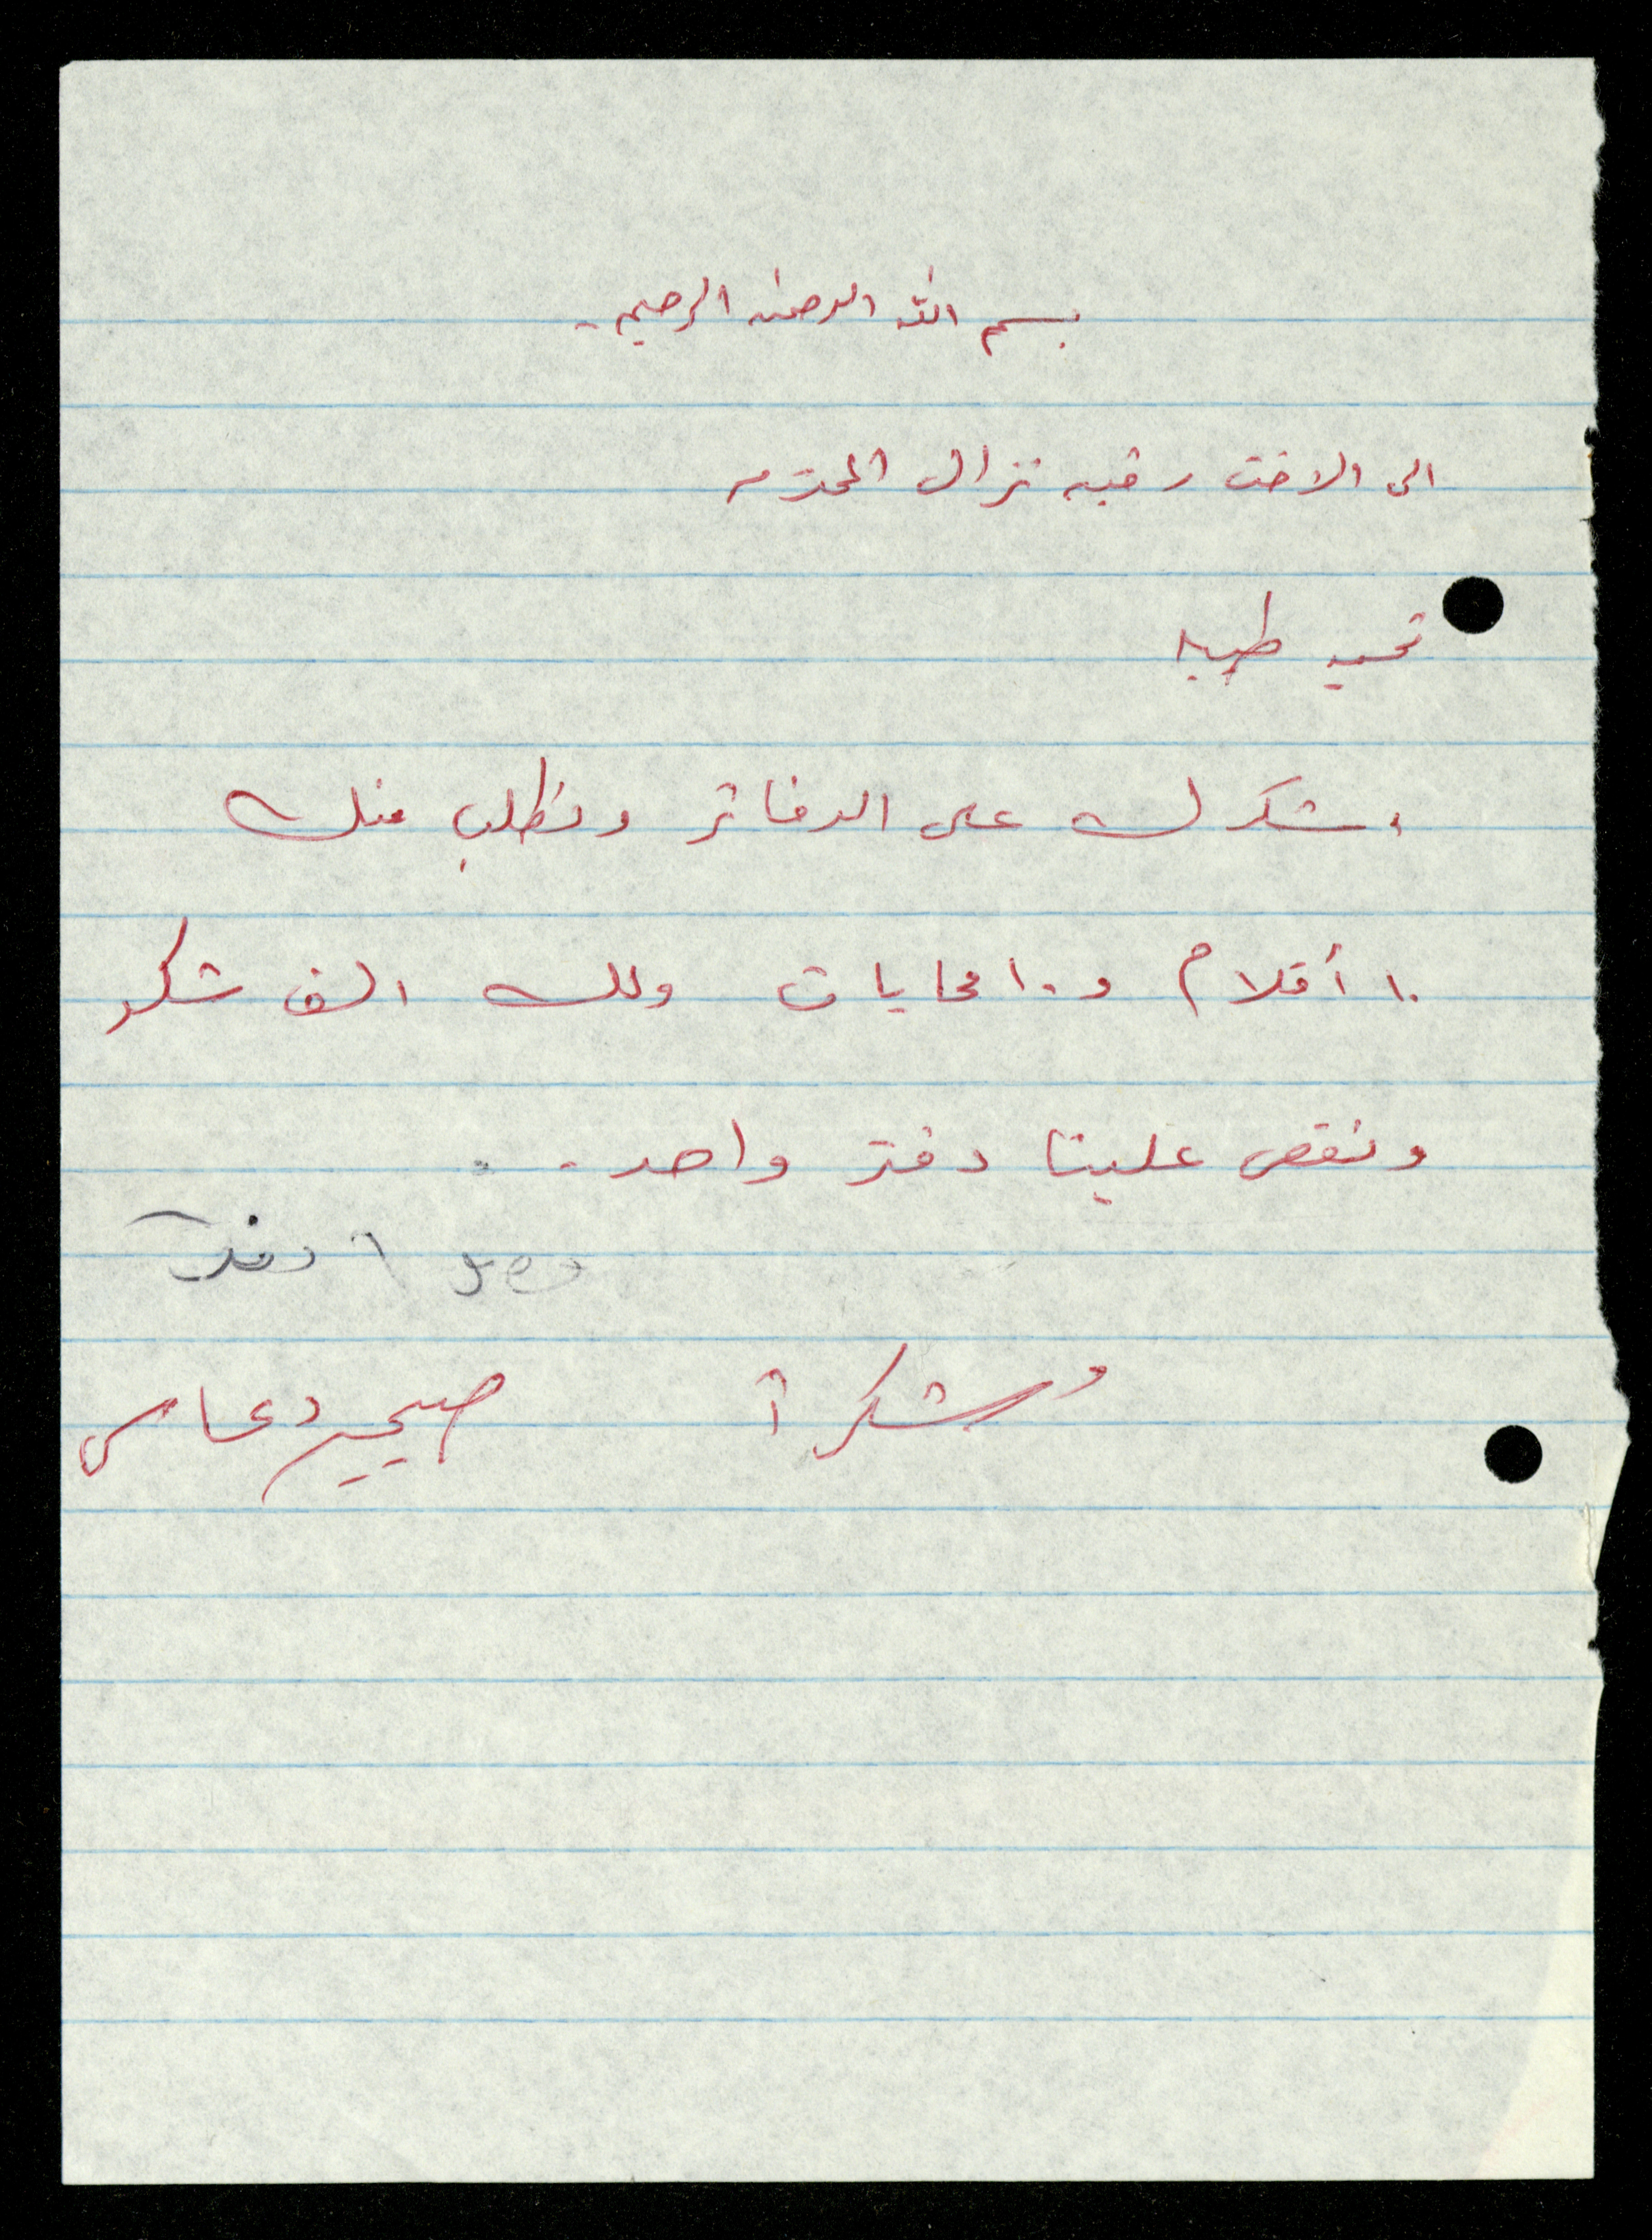 بسم الله الرحمن الرحيم .
الى الاخت رقيه نزال المحترمه
تحيه طيبه
اشكرك على الدفاتر ونطلب منك
١٠ أقلام و ١٠ محايات ولك الف شكر
ونقص علينا دفتر واحد . .
وصل ١ دفتر
وشكرآ صبحيه دعاس